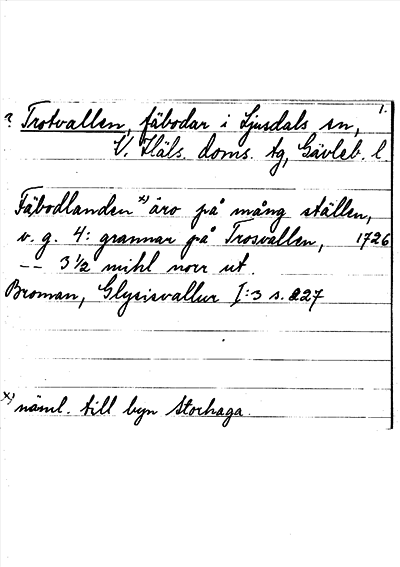 1.
? Trotvallen, fäbodar i Ljusdals sn,
V. Häls. doms. tg, Gävleb. l
Fäbodlanden x) äro på mång ställen,
v. g. 4: grannar på Trosvallen, 1726
-- 3 1/2 mihl norr ut.
Broman, Glysisvallur I:3 s. 827
x) näml. till byn Storhaga.